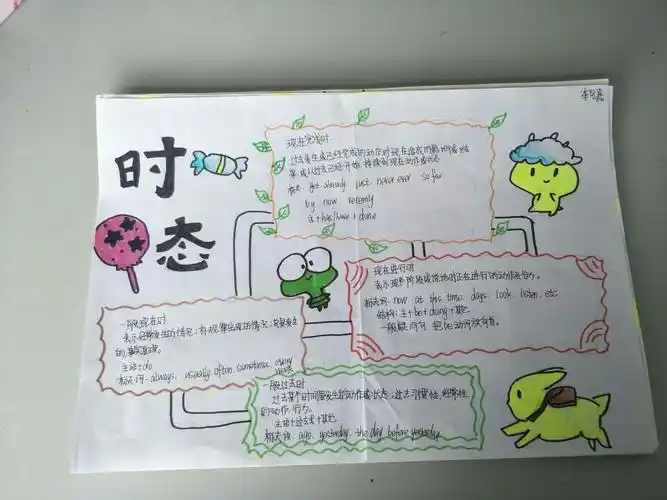 时态
现在完成时
过去发生或已经完成的动作对现在造成的影响或结
果,或从过去已经开始,持续到现在动作或状态
yet already just never ever so far
by now recently
主+has/have+done
现在进行时
表示现阶段或说话时正在进行的动作及行为。
标志词: now at this time. days. look. listen. etc
结构:主+be+doing+其他
一般疑问句 把be动词放句首。
一般现在时
表示经常发生的情况;有规律出现的情况;
的事实真理。
主语+do
标志词:always, usually often sometime every
week
一般过去时
过去某个时间里发生的动作或状态;过去习惯性、经常性
的动作、行为。
主语+过去式+其他
ago. yesterday. the day before yesterday